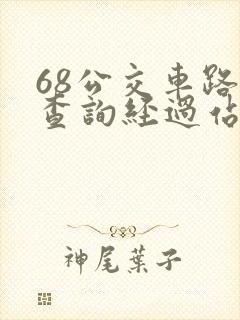 68公交車路
查詢經過佔
神尾葉子